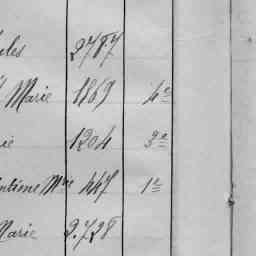 les 2787
Marie 1869 4e
ie 1204 3e
Mne 447 1e
Marie 2.728